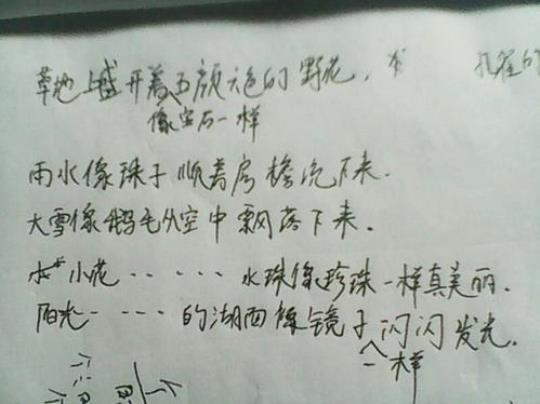 草地上盛开着五颜六色的野花,
像宝石一样
雨水像珠子顺着房檐流下来.
大雪像鹅毛从空中飘落下来.
小花······水珠像珍珠一样真美丽.
阳光····的湖面像镜子闪闪发光.
一样